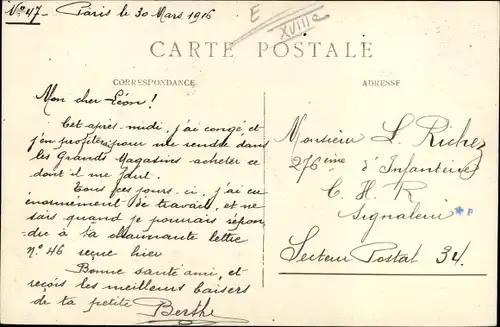 No 47 - Paris le 30 Mars 1916
E
XVIIIe
CARTE POSTALE
CORRESPONDANCE
Mon cher Léon!
Cet après-midi, j'ai congé et
j'en profiterai pour me rendre dans
les Grands Magasins acheter ce
dont il me faut.
Tous ces jours-ci, j'ai eu
énormément de travail, et ne
sais quand je pourrais répon-
dre à ta charmante lettre
No 46 reçue hier
Bonne santé ami, et
reçois les meilleurs baisers
de ta petite Berthe
ADRESSE
Monsieur L. Richez
276ème d'Infanterie
C. H. R
Signaleur
Secteur Postal 34.